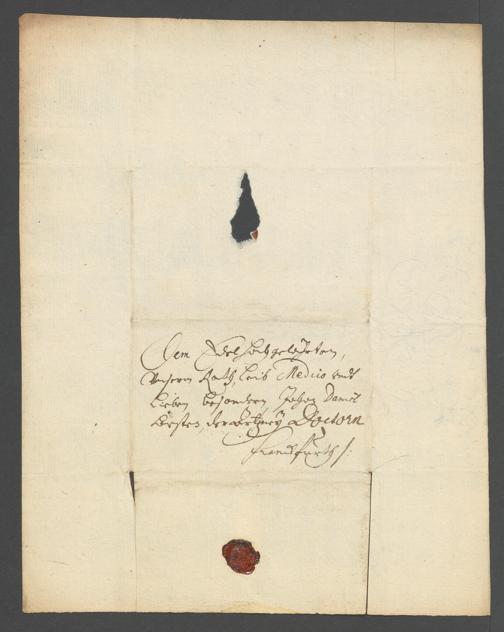 Dem Edel hochgelahrten,
Unserm Rath, Leib Medico undt
Lieben besondern, Johan Daniel
der artzney Doctorn
Franckfurth /: